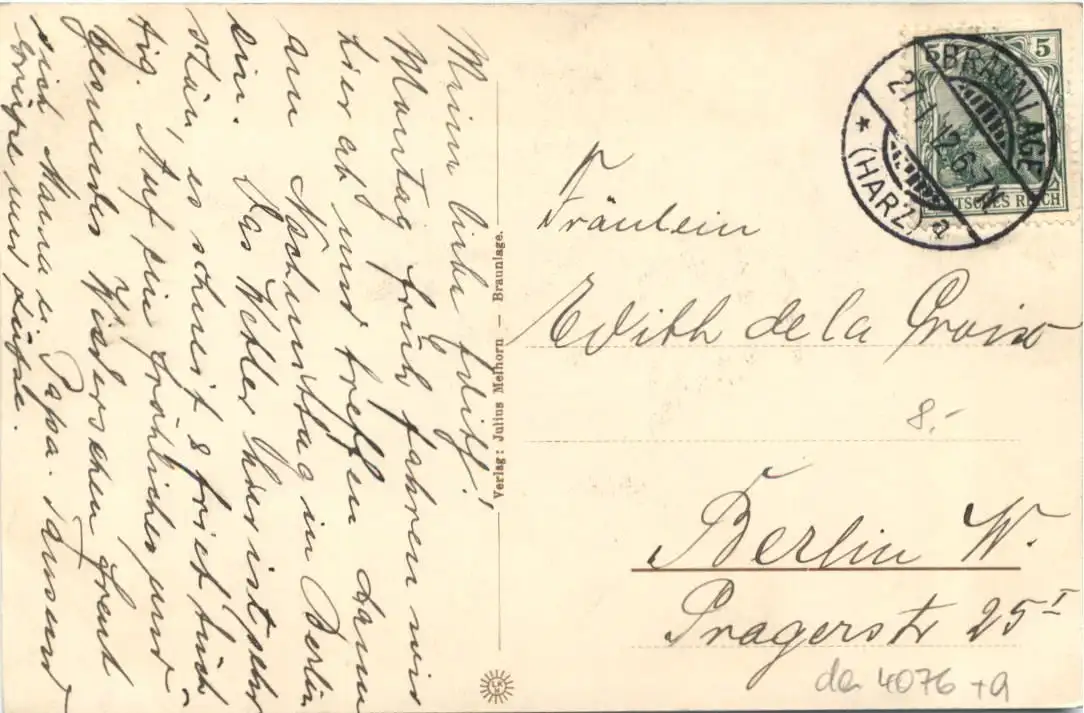 Meine liebe Edith!
Montag früh fahren wir
hier ab und treffen dann
am Nachmittag in Berlin
ein. Das Wetter hier ist sehr
schön, es schneit & friert tüch
tig. Auf ein fröhliches und
gesundes Wiedersehen freut
sich Mama u. Papa. Tausend
Grüße und Küsse.
Verlag: Julius Melhorn — Braunlage.
5 5
DEUTSCHES REICH
BRAUNLAGE
27.1.12.6-7N.
* (HARZ) a
Fräulein
Edith de la Croix
8.-
Berlin W.
Pragerstr 25 I
da 4076 + a